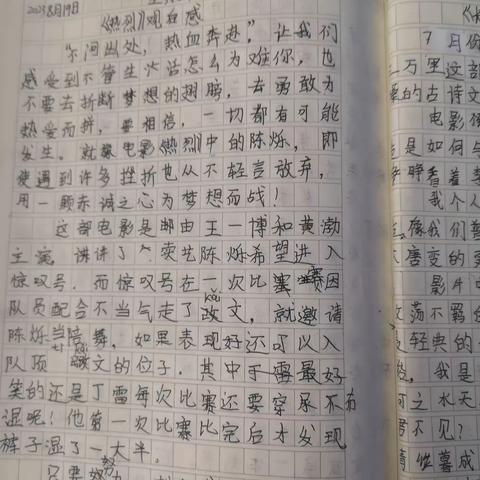 2023年8月19日
《热烈》观后感
“不问出处，热血奔赴”，让我们
感受到不管生活怎么为难你，也
不要去折断梦想的翅膀，去勇敢为
热爱而拼，要相信，一切都有可能
发生。就像电影《热烈》中的陈烁，即
使遇到许多挫折也从不轻言放弃，
用一颗赤诚之心为梦想而战！
这部电影是由王一博和黄渤
主演，讲讲了个卖艺陈烁希望进入
惊叹号。而惊叹号在一次比赛因
队员配合不当气走了kǎi文，就邀请
陈烁当陪舞，如果表现好还可以入
队顶kǎi文的位子。其中丁雷最好
笑的还是丁雷每次比赛还要穿尿不
湿呢！他第一次比赛比完后才发现
裤子湿了一大半。
只要努
7月份
三万里这部
的古诗文
电影
是如何与
睁看着李
我个人
像我们
不唐变的
影片中
放荡不羁
轻典的
我是
河之水天
君不见？